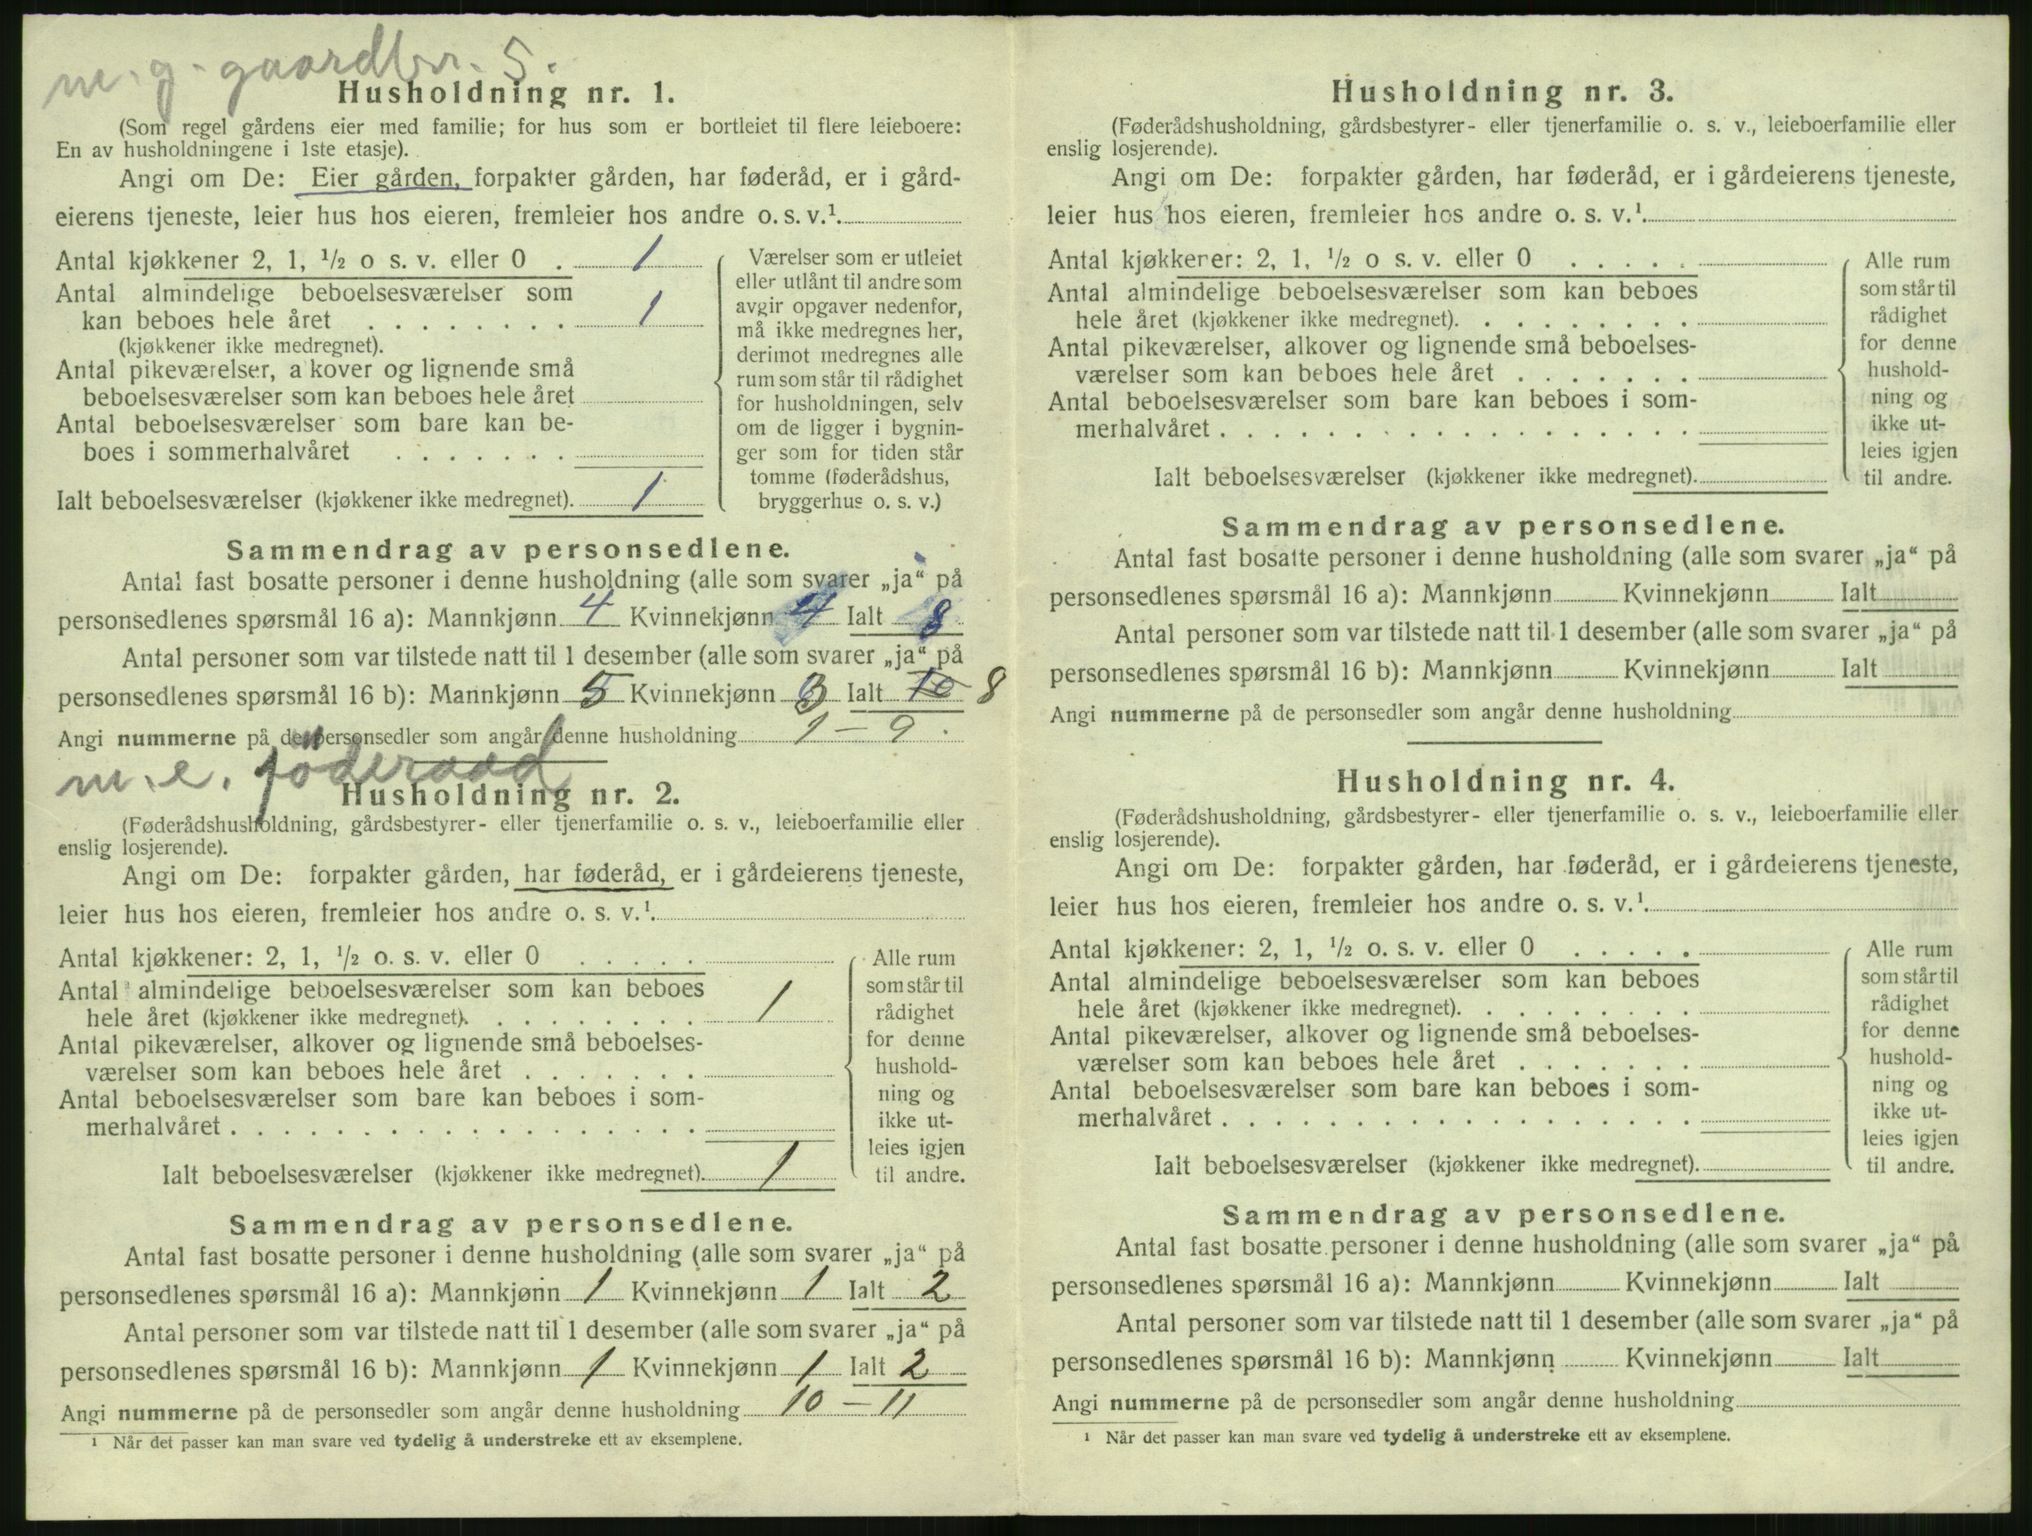 m. g. gaardbr. 5.
Husholdning nr. 1.
(Som regel gårdens eier med familie; for hus som er bortleiet til flere leieboere:
En av husholdningene i 1ste etasje).
Angi om De: Eier gården, forpakter gården, har føderåd, er i gård-
eierens tjeneste, leier hus hos eieren, fremleier hos andre o. s. v.¹
Antal kjøkkener 2, 1, ½ o s. v. eller 0 . 1
Antal almindelige beboelsesværelser som
kan beboes hele året . . . . . . . . 1
(kjøkkener ikke medregnet).
Antal pikeværelser, alkover og lignende små
beboelsesværelser som kan beboes hele året
Antal beboelsesværelser som bare kan be-
boes i sommerhalvåret . . . . . . .
Ialt beboelsesværelser (kjøkkener ikke medregnet). 1
Værelser som er utleiet
eller utlånt til andre som
avgir opgaver nedenfor,
må ikke medregnes her,
derimot medregnes alle
rum som står til rådighet
for husholdningen, selv
om de ligger i bygnin-
ger som for tiden står
tomme (føderådshus,
bryggerhus o. s. v.)
Sammendrag av personsedlene.
Antal fast bosatte personer i denne husholdning (alle som svarer „ja“ på
personsedlenes spørsmål 16 a): Mannkjønn 4 Kvinnekjønn 4 Ialt 8
Antal personer som var tilstede natt til 1 desember (alle som svarer „ja“ på
personsedlenes spørsmål 16 b): Mannkjønn 5 Kvinnekjønn 3 Ialt 10 8
Angi nummerne på de personsedler som angår denne husholdning 1 – 9.
m. e. föderaad
Husholdning nr. 2.
(Føderådshusholdning, gårdsbestyrer- eller tjenerfamilie o. s. v., leieboerfamilie eller
enslig losjerende).
Angi om De: forpakter gården, har føderåd, er i gårdeierens tjeneste,
leier hus hos eieren, fremleier hos andre o. s. v.¹
Antal kjøkkener: 2, 1, ½ o. s. v. eller 0 . . . . .
Antal almindelige beboelsesværelser som kan beboes
hele året (kjøkkener ikke medregnet). . . . . . . . . 1
Antal pikeværelser, alkover og lignende små beboelses-
værelser som kan beboes hele året . . . . . . .
Antal beboelsesværelser som bare kan beboes i som-
merhalvåret . . . . . . . . . . . . . . . . . .
Ialt beboelsesværelser (kjøkkener ikke medregnet). 1
Alle rum
som står til
rådighet
for denne
hushold-
ning og
ikke ut-
leies igjen
til andre.
Sammendrag av personsedlene.
Antal fast bosatte personer i denne husholdning (alle som svarer „ja“ på
personsedlenes spørsmål 16 a): Mannkjønn 1 Kvinnekjønn 1 Ialt 2
Antal personer som var tilstede natt til 1 desember (alle som svarer „ja“ på
personsedlenes spørsmål 16 b): Mannkjønn 1 Kvinnekjønn 1 Ialt 2
Angi nummerne på de personsedler som angår denne husholdning 10 – 11
¹ Når det passer kan man svare ved tydelig å understreke ett av eksemplene.
Husholdning nr. 3.
(Føderådshusholdning, gårdsbestyrer- eller tjenerfamilie o. s. v., leieboerfamilie eller
enslig losjerende).
Angi om De: forpakter gården, har føderåd, er i gårdeierens tjeneste,
leier hus hos eieren, fremleier hos andre o. s. v.¹
Antal kjøkkener: 2, 1, ½ o s. v. eller 0 . . . . .
Antal almindelige beboelsesværelser som kan beboes
hele året (kjøkkener ikke medregnet). . . . . . . . .
Antal pikeværelser, alkover og lignende små beboelses-
værelser som kan beboes hele året . . . . . . .
Antal beboelsesværelser som bare kan beboes i som-
merhalvåret . . . . . . . . . . . . . . . . . .
Ialt beboelsesværelser (kjøkkener ikke medregnet).
Alle rum
som står til
rådighet
for denne
hushold-
ning og
ikke ut-
leies igjen
til andre.
Sammendrag av personsedlene.
Antal fast bosatte personer i denne husholdning (alle som svarer „ja“ på
personsedlenes spørsmål 16 a): Mannkjønn Kvinnekjønn Ialt
Antal personer som var tilstede natt til 1 desember (alle som svarer „ja“ på
personsedlenes spørsmål 16 b): Mannkjønn Kvinnekjønn Ialt
Angi nummerne på de personsedler som angår denne husholdning
Husholdning nr. 4.
(Føderådshusholdning, gårdsbestyrer- eller tjenerfamilie o. s. v., leieboerfamilie eller
enslig losjerende).
Angi om De: forpakter gården, har føderåd, er i gårdeierens tjeneste,
leier hus hos eieren, fremleier hos andre o. s. v.¹
Antal kjøkkener: 2, 1, ½ o. s. v. eller 0 . . . . .
Antal almindelige beboelsesværelser som kan beboes
hele året (kjøkkener ikke medregnet). . . . . . . . .
Antal pikeværelser, alkover og lignende små beboelses-
værelser som kan beboes hele året . . . . . . .
Antal beboelsesværelser som bare kan beboes i som-
merhalvåret . . . . . . . . . . . . . . . . . .
Ialt beboelsesværelser (kjøkkener ikke medregnet).
Alle rum
som står til
rådighet
for denne
hushold-
ning og
ikke ut-
leies igjen
til andre.
Sammendrag av personsedlene.
Antal fast bosatte personer i denne husholdning (alle som svarer „ja“ på
personsedlenes spørsmål 16 a): Mannkjønn Kvinnekjønn Ialt
Antal personer som var tilstede natt til 1 desember (alle som svarer „ja“ på
personsedlenes spørsmål 16 b): Mannkjønn Kvinnekjønn Ialt
Angi nummerne på de personsedler som angår denne husholdning
¹ Når det passer kan man svare ved tydelig å understreke ett av eksemplene.